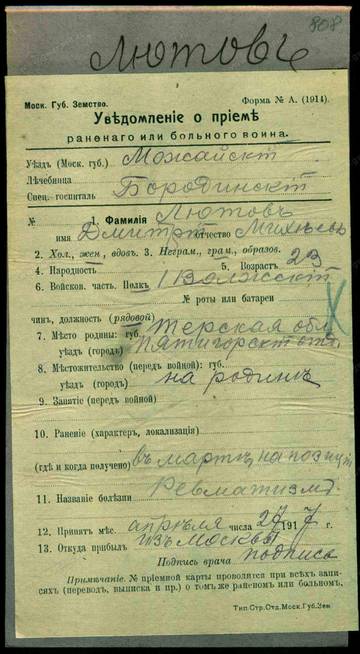 808
Лютовъ
Моск. Губ. Земство. Форма № А. (1914).
Увѣдомленіе о пріемѣ
раненаго или больного воина.
Уѣздъ (Моск. губ.) Можайскій
Лѣчебница
Спец. госпиталь Бородинскій
№ 1. Фамилія Лютовъ
имя Дмитрій отчество
2. Хол., жен., вдов. 3. Неграм., грам., образов.
4. Народность 5. Возрастъ 23
6. Войсков. часть. Полкъ 1 Волжскій
№ роты или батареи
чинъ, должность (рядовой)
7. Мѣсто родины: губ. Терская обл
уѣздъ (городъ) Пятигорскій отд.
8. Мѣстожительство (передъ войной): губ.
уѣздъ (городъ) на родинѣ
9. Занятіе (передъ войной)
10. Раненіе (характер, локализація)
(гдѣ и когда получено) въ мартѣ на позиц
11. Названіе болѣзни Ревматизмъ
12. Принятъ мѣс. апрѣля числа 27 1917 г.
13. Откуда прибылъ изъ Москвы
Подпись врача подпись
Примѣчаніе. № пріемной карты проводится при всѣхъ запи-
сяхъ (перевод., выписка и пр.) о томъ же раненомъ или больномъ.
Тип. Стр. Отд. Моск. Губ. Зем